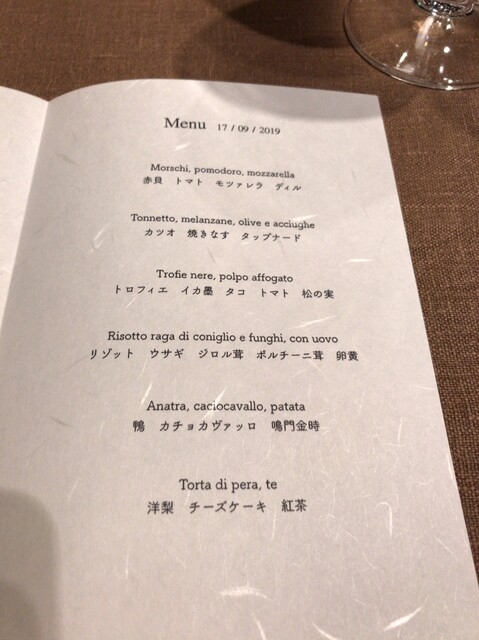 Menu 17 / 09 / 2019
Morschi, pomodoro, mozzarella
赤貝 トマト モツァレラ ディル
Tonnetto, melanzane, olive e acciughe
カツオ 焼きなす タップナード
Trofie nere, polpo affogato
トロフィエ イカ墨 タコ トマト 松の実
Risotto raga di coniglio e funghi, con uovo
リゾット ウサギ ジロル茸 ポルチーニ茸 卵黄
Anatra, caciocavallo, patata
鴨 カチョカヴァッロ 鳴門金時
Torta di pera, te
洋梨 チーズケーキ 紅茶